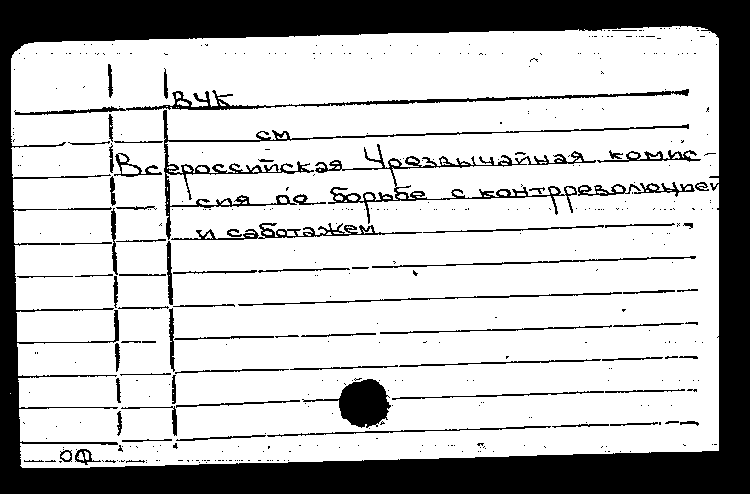 ВЧК
см
Всероссийская Чрезвычайная комис-
сия по борьбе с контрреволюцией
и саботажем
ОФ